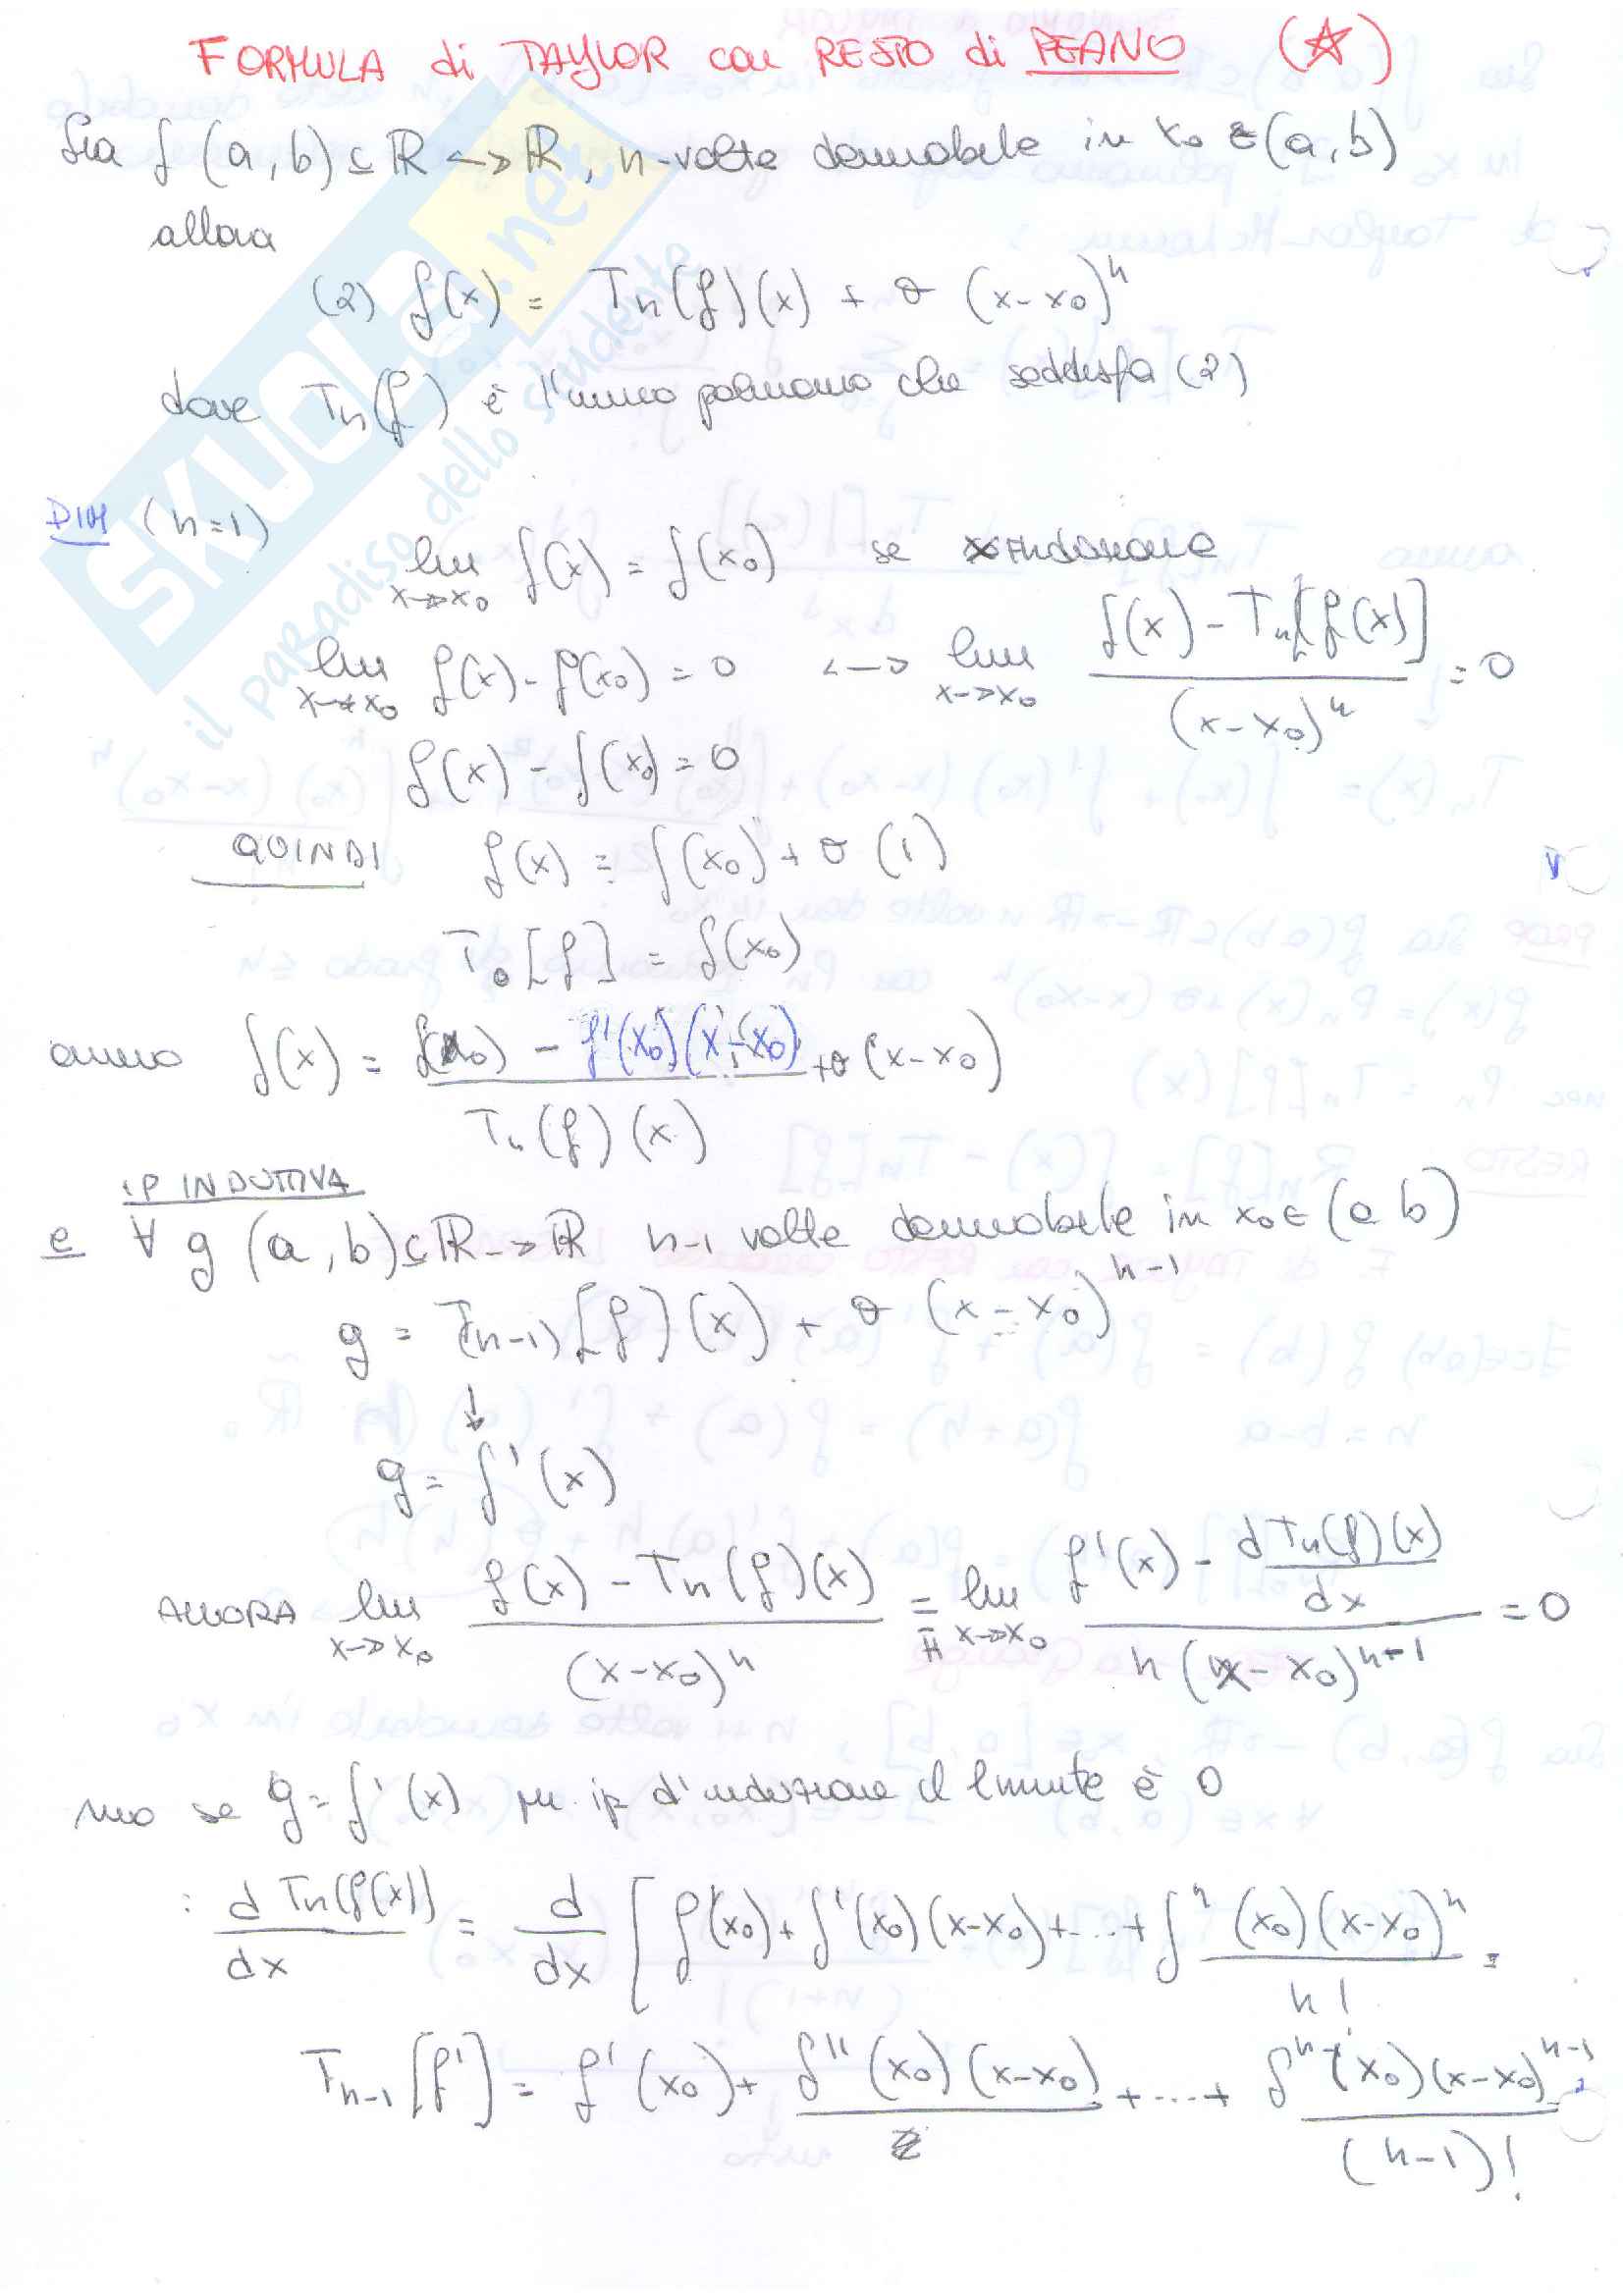 FORMULA di TAYLOR con RESTO di PEANO (☆)
Sia f (a, b) ⊆ ℝ <-> ℝ, n-volte derivabile in x₀ ∈ (a, b)
allora
(2) f(x) = Tn(f)(x) + o (x-x₀)ⁿ
dove Tn(f) è l'unico polinomio che soddisfa (2)
DIM (n=1)
lim x->x₀ f(x) = f(x₀) se
lim x->x₀ f(x) - f(x₀) = 0 <-> lim x->x₀ (f(x) - Tn[f(x)]) / (x-x₀)ⁿ = 0
f(x) - f(x₀) = 0
QUINDI f(x) = f(x₀) + o (1)
T₀[f] = f(x₀)
ovvero f(x) = f(x₀) - f'(x₀)(x-x₀) + o (x-x₀)
Tn(f)(x)
IP INDUTTIVA
e ∀ g (a, b) ⊆ ℝ -> ℝ n-1 volte derivabile in x₀ ∈ (a b)
g = T(n-1)[f](x) + o (x-x₀)ⁿ⁻¹
↓
g = f'(x)
ALLORA lim x->x₀ (f(x) - Tn(f)(x)) / (x-x₀)ⁿ =H lim x->x₀ (f'(x) - d Tn(f)(x)/dx) / n(x-x₀)ⁿ⁺¹ = 0
ma se g = f'(x) per ip d'induzione il limite è 0
: d Tn(f(x))/dx = d/dx [f(x₀) + f'(x₀)(x-x₀) + ... + fⁿ(x₀)(x-x₀)ⁿ / n! =
Tn-1[f'] = f'(x₀) + f''(x₀)(x-x₀) / 2 + .... + fⁿ(x₀)(x-x₀)ⁿ⁻¹ / (n-1)!
SKUOLA.net
il paradiso dello studente